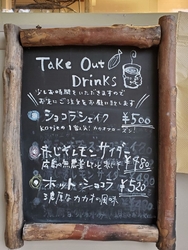 Take Out
Drinks
少しお時間をいただきますので
お先にご注文をお願い致します
ショコラシェイク ¥500
赤じそレモンサイダー
¥480
ホットショコラ ¥520
濃厚なカカオの風味